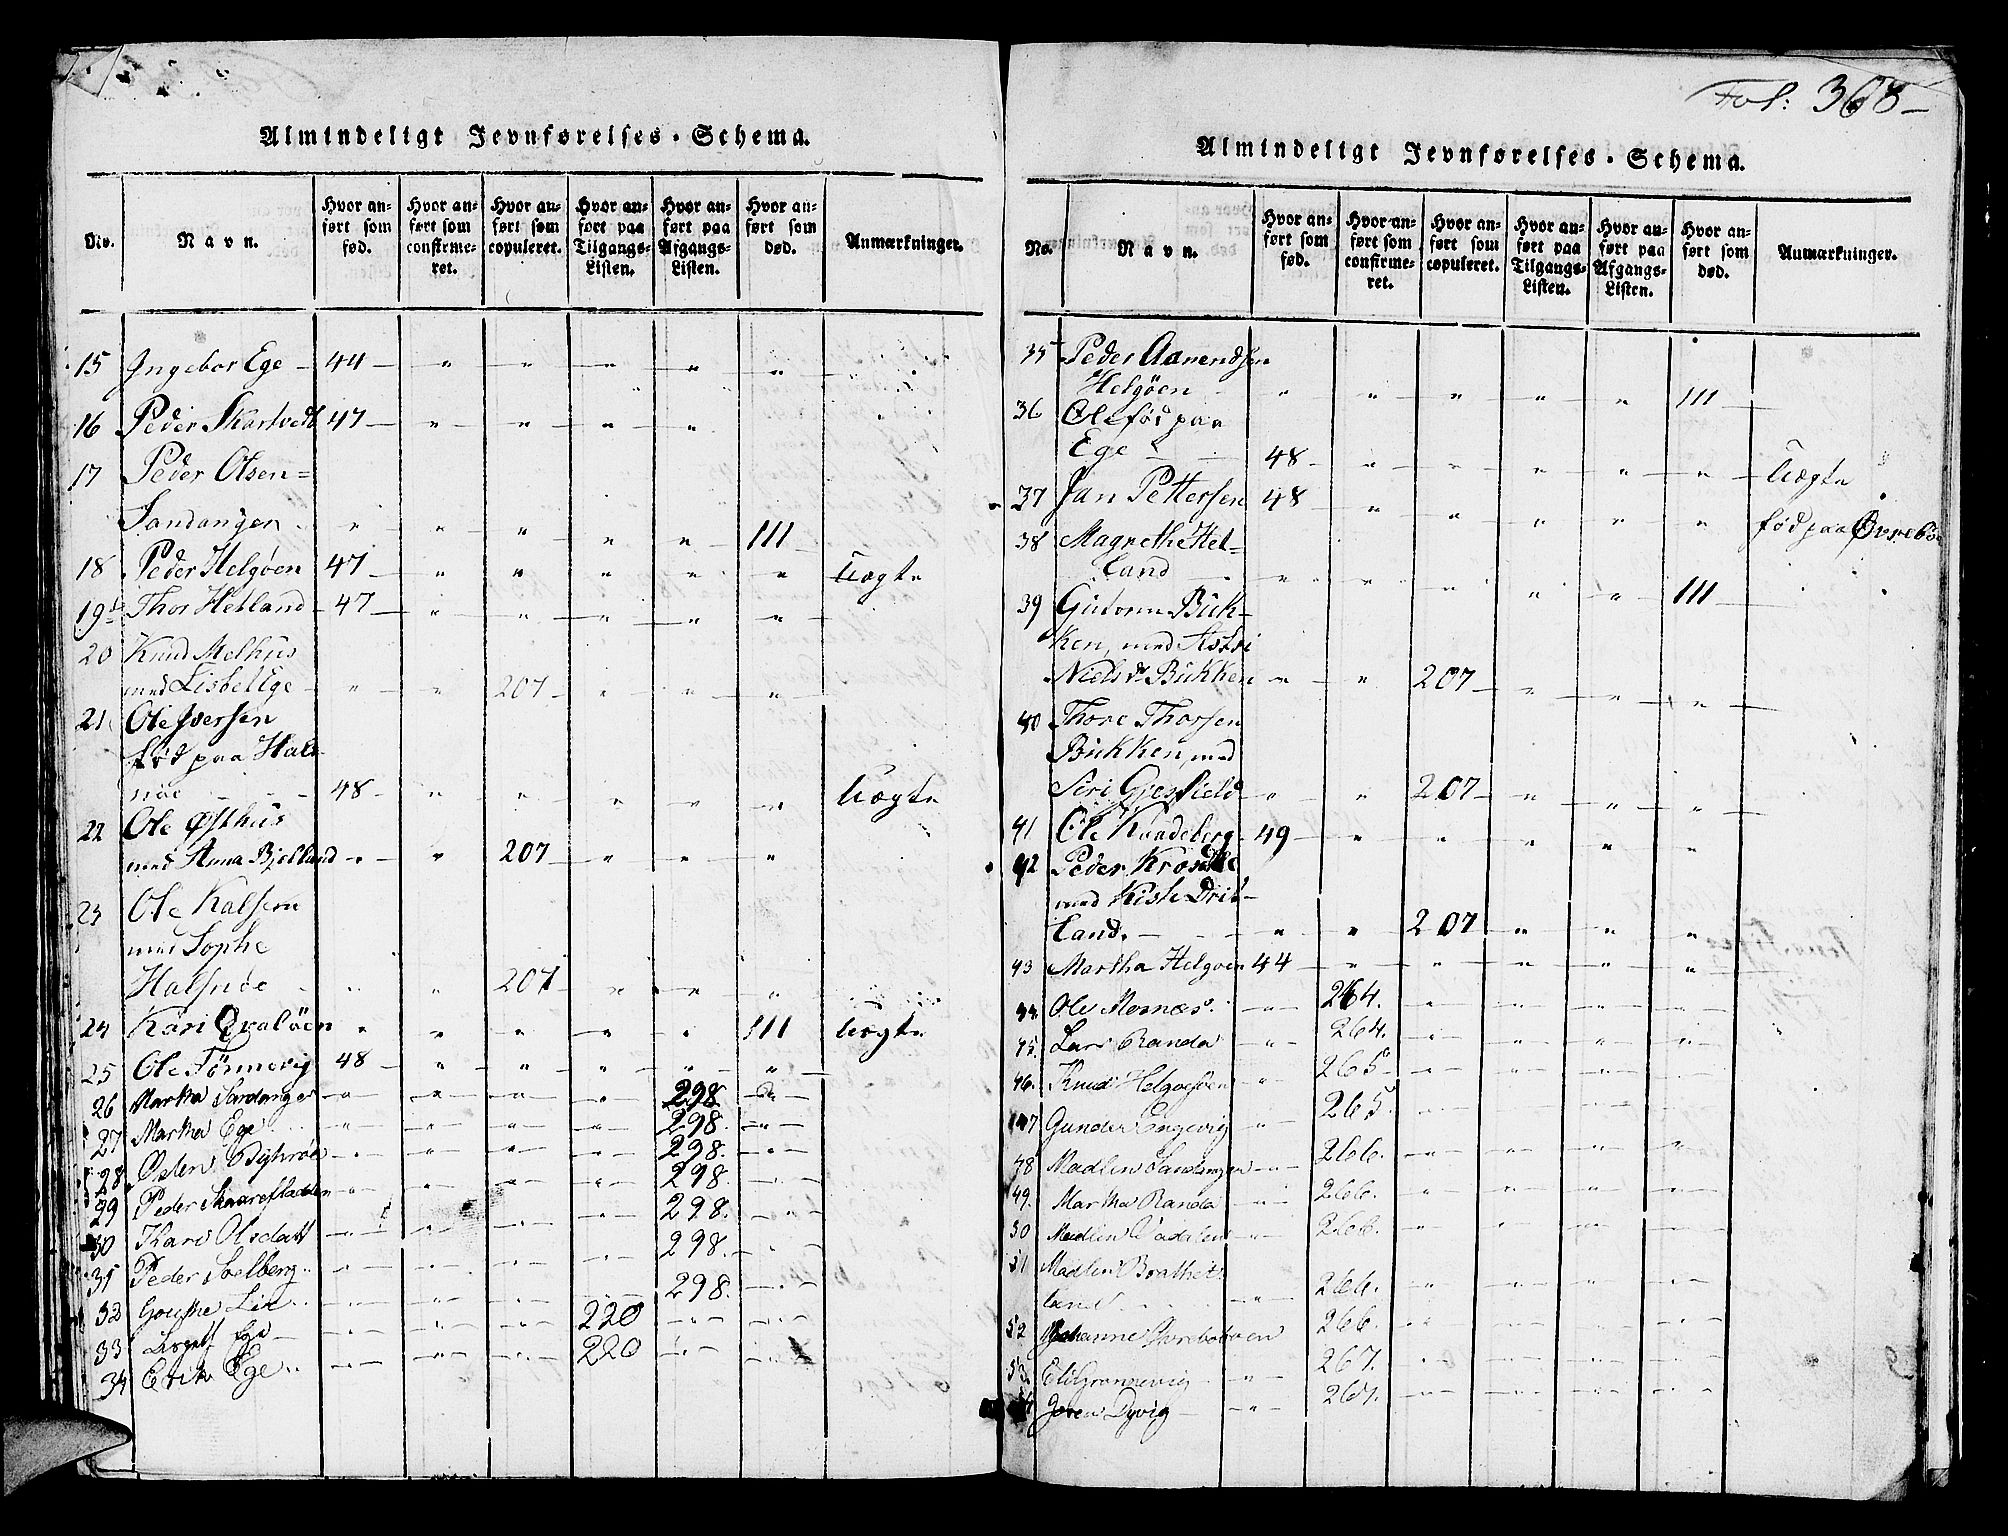 Almindeligt Jevnførelses-Schema.
No.
Navn.
Hvor an-
ført som
fød.
Hvor an-
ført som
confirme-
ret.
Hvor an-
ført som
copuleret.
Hvor an-
ført paa
Tilgangs-
Listen.
Hvor an-
ført paa
Afgangs-
Listen.
Hvor an-
ført som
død.
Anmærkninger.
15 Ingebor Ege - 44 - " " " " "
16 Peder Skartvedt 47 - " " " "
17 Peder Olsen =
Sandanger " " " " " 111
18 Peder Helgøen 47 - " " " " " Uægte
19 Thor Hetland - 47 - " " " " "
20 Knud Melhus
med Lisbet Ege - " " 207 - " " "
21 Ole Iversen
fød paa Hals-
nöe - - - 48 - " " " " " Uægte
22 Ole Østhus
med Anna Bjelland " " 207 " " "
23 Ole Kalsem
med Sophe
Halsnöe - " " 207 " " "
24 Kari Qvalöen " " " " " 111 Uægte
25 Ole Tönnevig 48 - " " " " "
26 Martha Sandanger " " " " 298 "
27 Martha Ege " " " " 298. "
28 Osten " " " " 298. "
29 Peder " " " " 298.
30 Kari Olsdatt " " " " 298. "
31 Peder Soelberg " " " " 298. "
32 " " " " 298. "
33 Ege " " " 220 " "
34 Erik Ege " " " 220 " "
Fol: 368-
Almindeligt Jevnførelses-Schema.
No.
Navn.
Hvor an-
ført som
fød.
Hvor an-
ført som
confirme-
ret.
Hvor an-
ført som
copuleret.
Hvor an-
ført paa
Tilgangs-
Listen.
Hvor an-
ført paa
Afgangs-
Listen.
Hvor an-
ført som
død.
Anmærkninger.
35 Peder Aamendsen
Helgöen " " " " " 111
36 Ole fød paa
Ege - 48 - " " " " " Uægte
37 Jan Pettersen 48 " " " " " fød paa Øvreböe
38 Magnethe Het-
land " " " " " 111
39 Gutorm Buk-
ken, med Astri
Niels Dr Bukken " " 207 - " " "
40 Thore Thorsen
Bukken, med
Siri Gjesfield " " 207 - " " "
41 Ole Kvadeberg - 49 - " " " " "
42 Peder
med
land. - " " 207 " " "
43 Martha Helgøen 44 - " " " " "
44 Ole Mosnæs. " 264. " " " "
45 Lars Randa " 264. " " " "
46. Knud Helgoesøen " 265. " " " "
47 Gunder Engevig " 265. " " " "
48 Madlen Sandanger " 266. " " " "
49. Martha Randa " 266. " " " "
50 Madlen " 266. " " " "
51 Madlen Brathet-
land " 266. " " " "
52 Johanne " 266. " " " "
53. Eli " 267. " " " "
54 Joren Dyvig " 267. " " " "